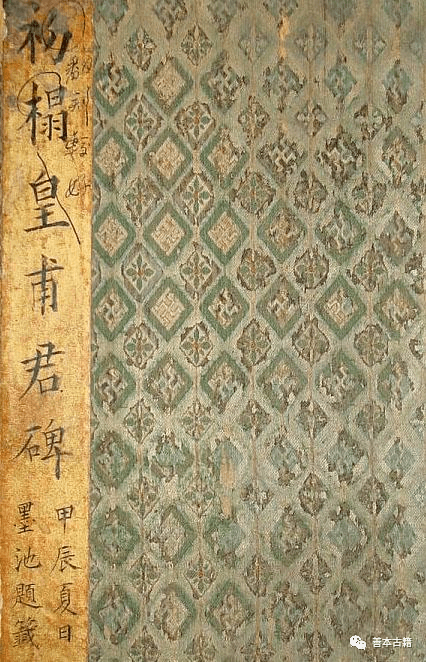 初榻皇甫君碑
甲辰夏日
墨池題籤
善本古籍